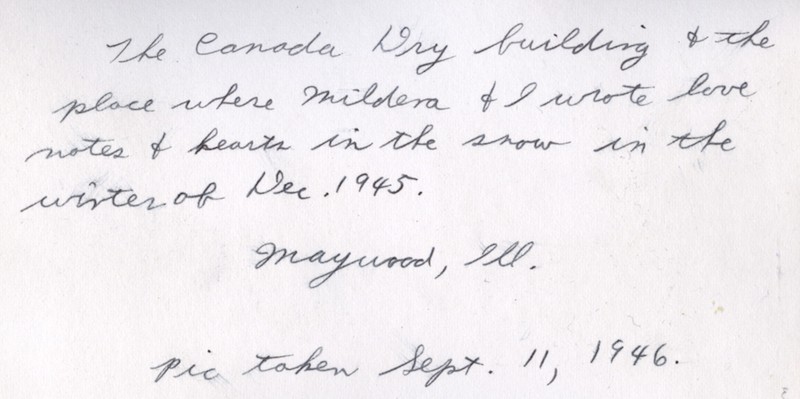 The Canada Dry building & the
place where Mildera & I wrote love
notes & hearts in the snow in the
winter of Dec. 1945.
Maywood, Ill.
Pic taken Sept. 11, 1946.